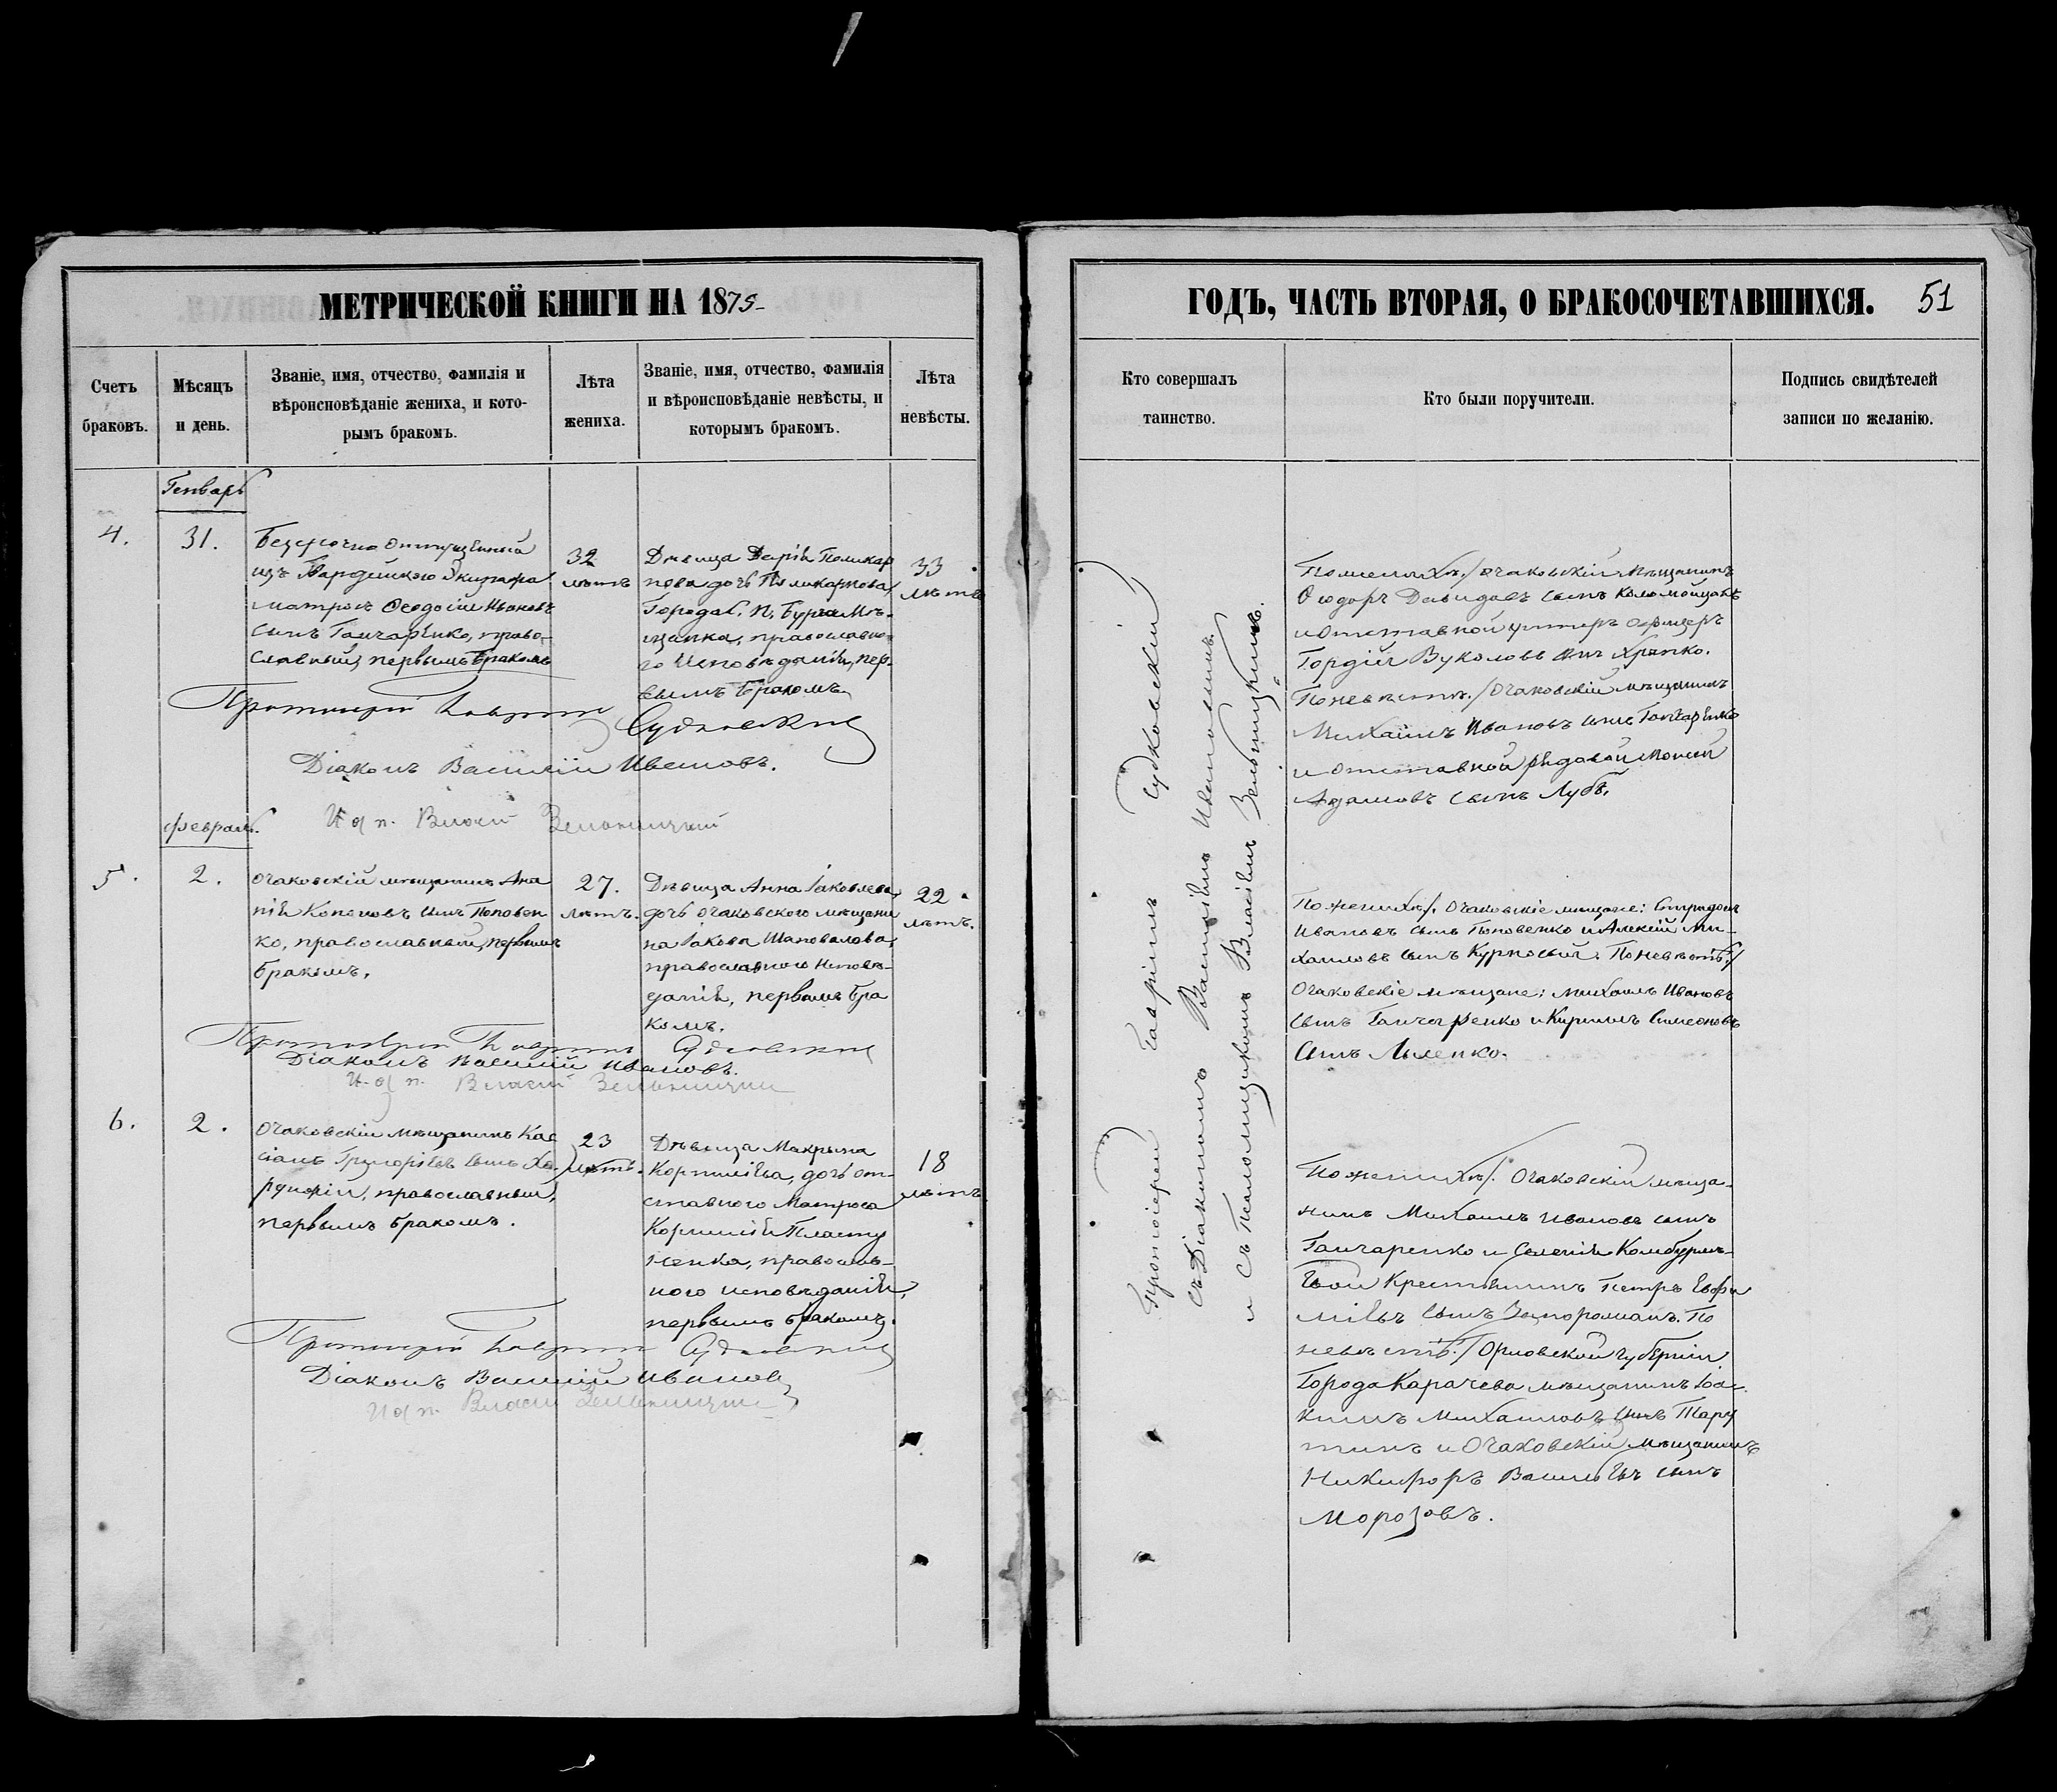 МЕТРИЧЕСКОЙ КНИГИ НА 1875
Счетъ
браковъ.
Мѣсяцъ
и день.
Званіе, имя, отчество, фамилія и
вѣроисповѣданіе жениха, и кото-
рымъ бракомъ.
Лѣта
жениха.
Званіе, имя, отчество, фамилія
и вѣроисповѣданіе невѣсты, и
которымъ бракомъ.
Лѣта
невѣсты.
Генварь
4.
31.
Безсрочно отпущенный
изъ Гвардейскаго Экипажа
матросъ Ѳеодосій Ивановъ
сынъ Ганчаренко, право-
славный, первымъ бракомъ
32
лѣтъ
Дѣвица Дарія Поликар
пова дочь Поликарпова,
мѣ-
щанка, православна-
го исповѣданія, пер-
вымъ бракомъ
33
лѣтъ
Протоіерей Гавріилъ Судковскій
Діаконъ Василій Ивановъ.
Февраль.
5.
2.
Очаковскій мѣщанинъ Ана
нія Кононовъ сынъ Поповен
ко, православный, первымъ
бракомъ.
27.
лѣтъ.
Дѣвица Анна Іаковлева,
дочь Очаковского мѣщани
на Іакова Шаповалова,
православного исповѣ-
данія, первымъ бра
комъ.
22
лѣтъ.
Протоіерей Гавріилъ Судковскій
Діаконъ Василій Ивановъ.
6.
2.
Очаковскій мѣщанинъ Кас
сіанъ Григоріевъ сынъ
православный,
первымъ бракомъ.
23
лѣтъ.
Дѣвица Макрина
Корнилієва, дочь от-
ставного матроса
Корнилія Пласту
ненка, православ-
ного исповѣданія,
первымъ бракомъ.
18
лѣтъ
Протоіерей Гавріилъ Судковскій
Діаконъ Василій Ивановъ
ГОДЪ, ЧАСТЬ ВТОРАЯ, О БРАКОСОЧЕТАВШИХСЯ.
51
Кто совершалъ
таинство.
Кто были поручители.
Подпись свидѣтелей
записи по желанію.
Протоіерей Гавріилъ Судковскій
съ Діакономъ Василіемъ Ивановымъ
и съ Псаломщикомъ Власіемъ
По женихѣ:/ Очаковскій мѣщанинъ
Ѳеодоръ Давидовъ сынъ
и отставной унтеръ офицеръ
Гордій Вуколовъ сынъ Храпко.
По невѣстѣ:/ Очаковскій мѣщанинъ
Михаилъ Ивановъ сынъ Ганчаренко
и отставной рядовой Моисей
Адамовъ сынъ Лубъ.
По женихѣ:/ Очаковскіе мѣщане: Спиридонъ
Ивановъ сынъ Поповенко и Алексій Ми-
хаиловъ сынъ Курносый. По невѣстѣ:/
Очаковскіе мѣщане: Михаилъ Ивановъ
сынъ Ганчаренко и Кириллъ Симеоновъ
сынъ
По женихѣ:/ Очаковскій мѣща-
нинъ Михаилъ Ивановъ сынъ
Ганчаренко и селенія
крестьянинъ Петръ Евфи
міевъ сынъ По
невѣстѣ:/ Орловской губерніи
города Карачева мѣщанинъ Іоа-
кимъ Михаиловъ сынъ Тару
тинъ и Очаковскій мѣщанинъ
Никифоръ Васильевъ сынъ
Морозовъ.